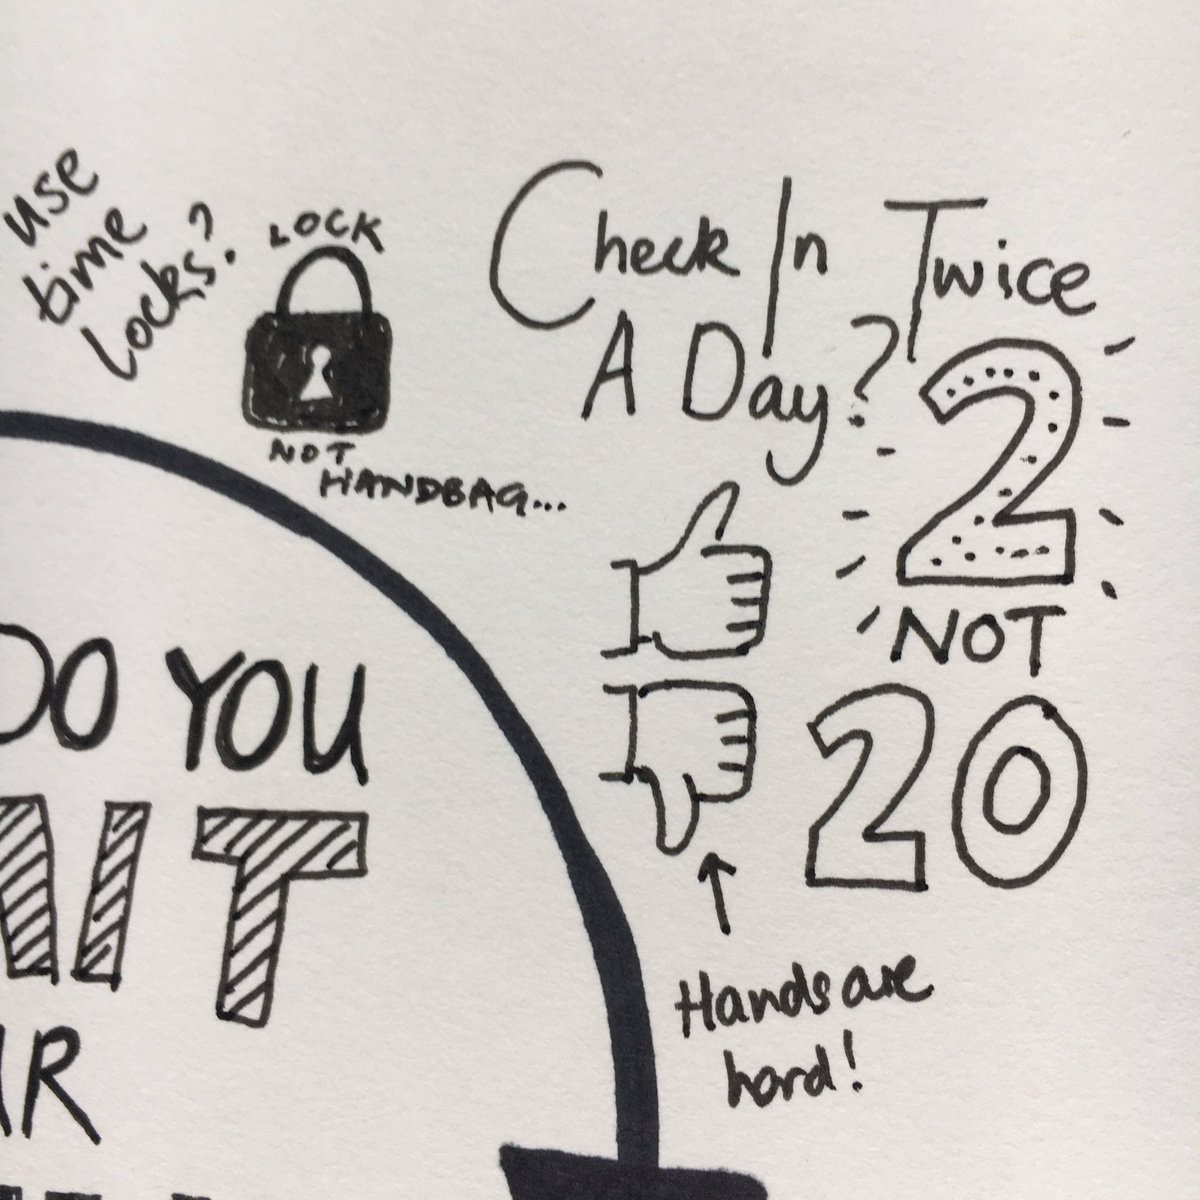 use
time
locks?
LOCK
NOT
HANDBAG...
Check In Twice
A Day?
2
NOT
20
Hands are
hard!
DO YOU
IT